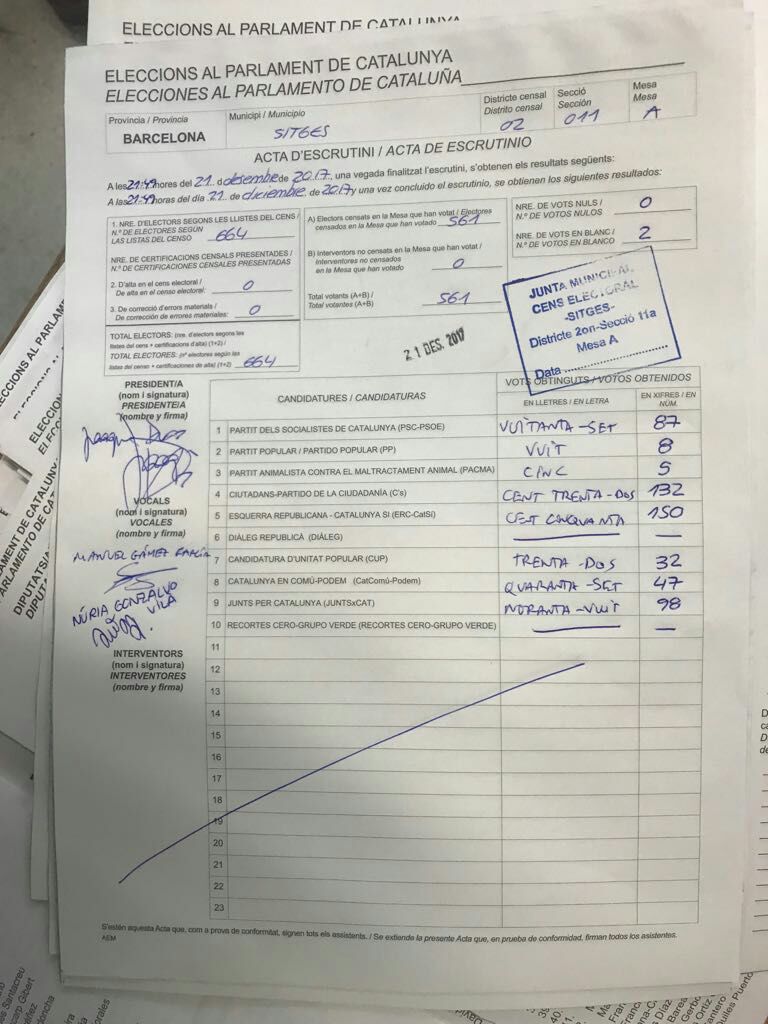 ELECCIONS AL PARLAMENT DE CATALUNYA
ELECCIONS AL PARLAMENT DE CATALUNYA
ELECCIONES AL PARLAMENTO DE CATALUÑA
Provincia / Provincia
BARCELONA
Municipi / Municipio
SITGES
Districte censal
Distrito censal
02
Secció
Sección
011
Mesa
Mesa
A
ACTA D'ESCRUTINI / ACTA DE ESCRUTINIO
A les 21:49 hores del 21 d desembre de 2017, una vegada finalitzat l'escrutini, s'obtenen els resultats següents:
A las 21:49 horas del día 21 de diciembre de 2017 y una vez concluido el escrutinio, se obtienen los siguientes resultados:
1. NRE. D'ELECTORS SEGONS LES LLISTES DEL CENS /
N.º DE ELECTORES SEGÚN
LAS LISTAS DEL CENSO 664
NRE. DE CERTIFICACIONS CENSALS PRESENTADES /
N.º DE CERTIFICACIONES CENSALES PRESENTADAS
2. D'alta en el cens electoral /
De alta en el censo electoral: 0
3. De correcció d'errors materials /
De corrección de errores materiales: 0
TOTAL ELECTORS: (nre. d'electors segons les
llistes del cens + certificacions d'alta) (1+2) /
TOTAL ELECTORES: (nº electores según las
listas del censo + certificaciones de alta) (1+2) 664
A) Electors censats en la Mesa que han votat / Electores
censados en la Mesa que han votado 561
B) Interventors no censats en la Mesa que han votat /
Interventores no censados
en la Mesa que han votado 0
Total votants (A+B) /
Total votantes (A+B) 561
NRE. DE VOTS NULS /
N.º DE VOTOS NULOS 0
NRE. DE VOTS EN BLANC /
N.º DE VOTOS EN BLANCO 2
21 DES. 2017
JUNTA MUNICIPAL
CENS ELECTORAL
-SITGES-
Districte 2on-Secció 11a
Mesa A
Data
PRESIDENT/A
(nom i signatura)
PRESIDENTE/A
(nombre y firma)
VOCALS
(nom i signatura)
VOCALES
(nombre y firma)
MANUEL GÁMEZ GARCÍA
NÚRIA GONZALVO
VILA
INTERVENTORS
(nom i signatura)
INTERVENTORES
(nombre y firma)
CANDIDATURES / CANDIDATURAS
VOTS OBTINGUTS / VOTOS OBTENIDOS
EN LLETRES / EN LETRA
EN XIFRES / EN NÚM.
1 PARTIT DELS SOCIALISTES DE CATALUNYA (PSC-PSOE) VUITANTA-SET 87
2 PARTIT POPULAR / PARTIDO POPULAR (PP) VUIT 8
3 PARTIT ANIMALISTA CONTRA EL MALTRACTAMENT ANIMAL (PACMA) CINC 5
4 CIUTADANS-PARTIDO DE LA CIUDADANÍA (C's) CENT TRENTA-DOS 132
5 ESQUERRA REPUBLICANA - CATALUNYA SI (ERC-CatSí) CET CINQUANTA 150
6 DIÀLEG REPUBLICÀ (DIÀLEG) —
7 CANDIDATURA D'UNITAT POPULAR (CUP) TRENTA-DOS 32
8 CATALUNYA EN COMÚ-PODEM (CatComú-Podem) QUARANTA-SET 47
9 JUNTS PER CATALUNYA (JUNTSxCAT) NORANTA-VUIT 98
10 RECORTES CERO-GRUPO VERDE (RECORTES CERO-GRUPO VERDE) —
11
12
13
14
15
16
17
18
19
20
21
22
23
S'estén aquesta Acta que, com a prova de conformitat, signen tots els assistents. / Se extiende la presente Acta que, en prueba de conformidad, firman todos los asistentes.
AEM